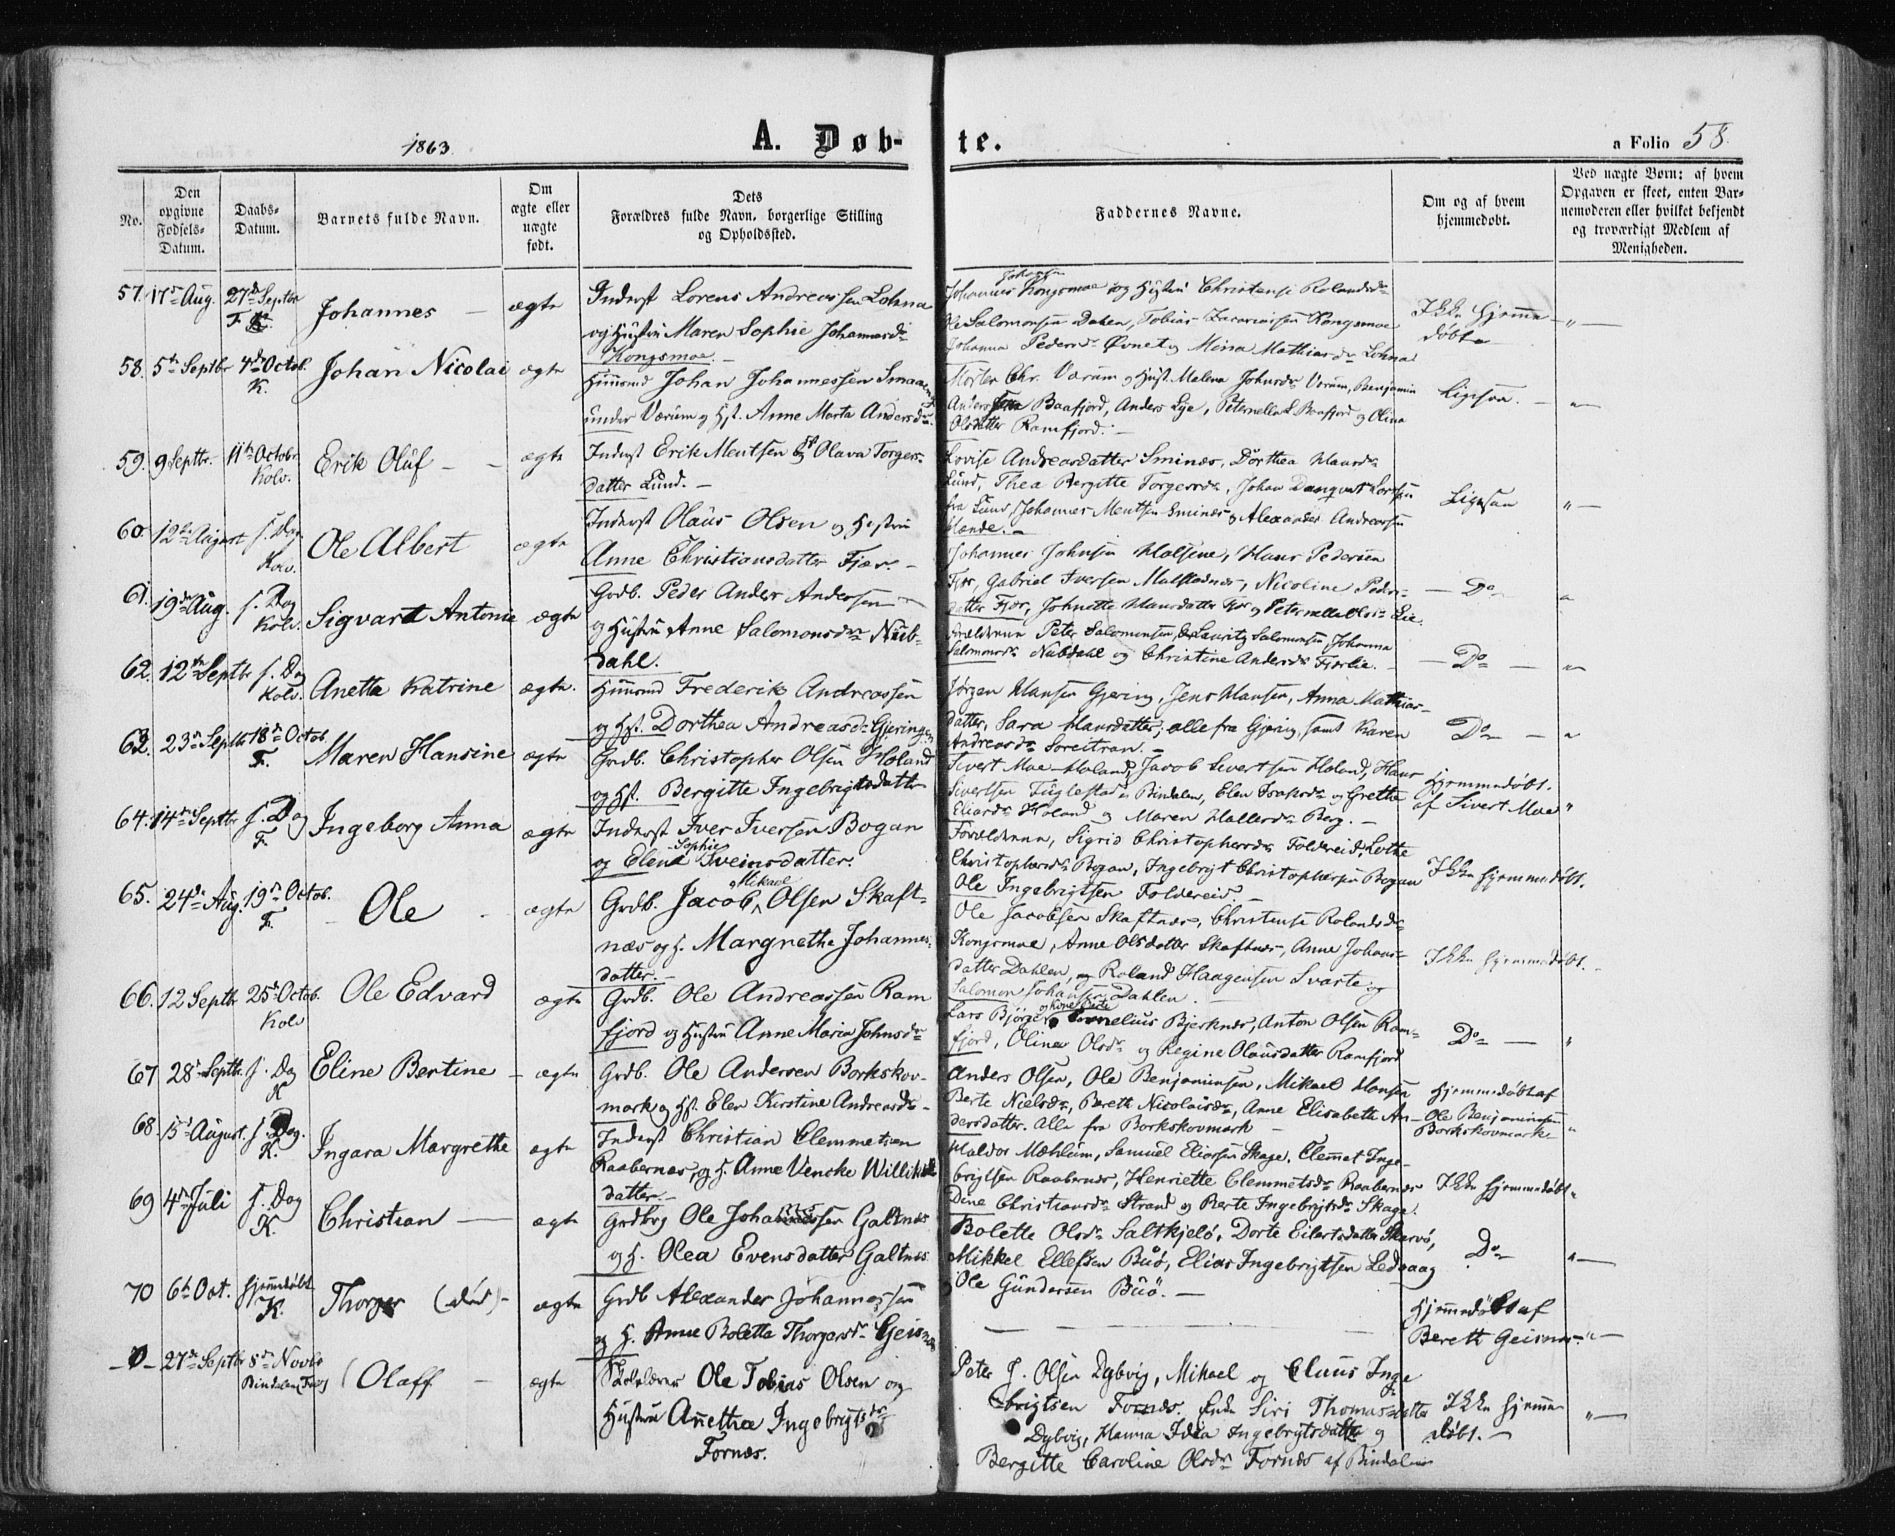 1863
A. Døb-
te.
a Folio 58.
No.
Den opgivne Fødsels-Datum.
Daabs-Datum.
Barnets fulde Navn.
Om ægte eller uægte født.
Dets Forældres fulde Navn, borgerlige Stilling og Opholdssted.
Faddernes Navne.
Om og af hvem hjemmedøbt.
Ved uægte Børn: af hvem Opgaven er skeet, enten Barnemoderen eller hvilket bekjendt og troværdigt Medlem af Menigheden.
57. 17de Aug. 27de Septbr F. Johannes ægte
Inderst Lorens Andreassen Lohna
og Hustru Maren Sophie Johannesdr
Kongsmoe.
Johannes Johansen Kongsmoe og Hustru Christense Rolandsdr
Ole Salomonsen Dahlen, Tobias Zacariasen Kongsmoe
Johanna Pedersdr Øvnet og Meina Mathiasdr Lohna
Ikke hjemme-
døbt
58. 5te Septbr 4de Octob. K. Johan Nicolai ægte
Huusmd Johan Johannessen
under Værum og Hst. Anne Marta Andersdr
Morten Chr. Værum og Hust. Malena Johnsdr Værum, Benjamin
Baafjord, Anders Lye, Peternella Baafjord og Olina
Olsdatter Ramfjord.
Ligesaa.
59. 9 Septbr. 11te Octobr Kolv. Erik Oluf ægte
Inderst Erik Mentsen og Olava Torgers-
datter Lund.
Lovise Andreasdatter Sminæs, Dorthea Hansdr
Lund, Thea Bergitte Torgersdr, Johan
fra Lund, Johannes Mentsen Sminæs og Alexander Andreassen
Ligesaa
60. 12te August s. Dag Kolv. Ole Albert ægte
Inderst Olaus Olsen og Hustru
Anne Christiansdatter Fjær.
Johannes Johnsen, Hans Pedersen
Fjær, Gabriel Iversen, Nicoline Peders-
datter Fjær, Johnette Hansdatter Fjær og
Do
61. 19de Aug. s. Dag Kolv. Sigvart Antonie ægte
Grdb. Peder Ander Andersen
og Hustru Anne Salomonsdr Nub-
dahl.
Forældrene Peter Salomonsen, Lauritz Salomonsen, Johanna
Salomonsdr Nubdahl og Christine Andersdr Fjærlie.
Do
62. 12te Septbr s. Dag Kolv. Anetta Katrine ægte.
Huusmd Frederik Andreassen
og Hst. Dorthea Andreasdr Gjeringen
Jørgen Hansen Gjering, Jens Hansen, Anna Mathias-
datter, Sara Hansdatter, alle fra Gjering, samt Karen
Andreasdr
Do
63. 23de Septbr 18de Octob F. Maren Hansine ægte
Grdb. Christopher Olsen Holand
og Hst. Bergitte Ingebrigtsdatter
Sivert Moe Holand, Jacob Sivertsen Holand, Hans
Sivertsen Fuglestad i Bindalen, Elen Isaksdr og Grethe
Eliasdr Holand og Maren Hallersdr Berg.
hjemmedøbt.
af Sivert Moe
64. 14de Septbr s. Dag F. Ingeborg Anna ægte
Inderst Iver Iversen Bogan
og Elena Sophie Sveinsdatter.
Forældrene, Sigrid Christophersdr Foldereid, Lothe
Christophersdr Bogan, Ingebrigt Christophersen Bogan
Ole Ingebrigtsen Foldereid.
Ikke hjemmedøbt.
65. 24de Aug. 19de Octob. F. Ole ægte
Grdb. Jacob Mikael Olsen Skaft-
næs og h. Margrethe Johannes-
datter.
Ole Jacobsen Skaftnæs, Christense Rolandsdr
Kongsmoe, Anne Olsdatter Skaftnæs, Anne Johans-
datter Dahlen, og Roland Haagensen Svarte og
Salomon Johansen Dahlen.
Ikke hjemmedøbt.
66. 12 Septbr 25de Octob. Kolv Ole Edvard ægte
Grdb. Ole Andreassen Ram
fjord og Hustru Anne Maria Johnsdr
Lars, Cornelius Bjerknæs, Anton Olsen Ram-
fjord, Olina Olsdr og Regine Olausdatter Ramfjord
Do
67 28de Septbr. s. Dag K Eline Bertine ægte
Grdb. Ole Andersen Borkskov-
mark og Hst. Elen Kirstine Andreasdr
Anders Olsen, Ole Benjaminsen, Mikael Hansen
Berte Nielsdr, Berett Nicolaisdr, Anne Elisabeth An-
dersdatter. Alle fra Borkskovmark
Hjemmedøbt af
Ole Benjaminsen
Borkskovmark
68. 15de August. s. Dag. K. Ingara Margrethe ægte
Inderst Christian Clemmetsen
Raabernæs og h. Anne Vencke
datter.
Haldor Mæhleim, Samuel Eliassen Skage, Clemmet Inge-
brigtsen Raabernæs, Henriette Clemmetsdr Raabernæs
Dine Christiansdr Strand og Berte Ingebrigtsdr Skage.
Ikke hjemmedøbt
69 4de Juli s. Dag K. Christian ægte
Grdbrg Ole Johannessen Galtnæs
og h. Olea Evensdatter Galtnæs
Bolette Olsdr Saltkjelø, Dorte Eilertsdatter Skarvø,
Mikkel Ellefsen Buø, Elias Ingebrigtsen Ledvaag
Ole Gundersen Buø.
Do
70 6te Oct. hjemdøbt K. Thorger (død) ægte
Grdb Alexander Johannessen
og h. Anne Boletta Thorgersdr Geisnæs
Hjemmedøbt af
Berett Geisnæs.
0 27de Septbr 8de Novbr Bindalen Olaff ægte
Skolelærer Ole Tobias Olsen og
Hustru Anethea Ingebrigtsdr
Fornæs.
Peter J. Olsen Dybvig, Mikael og Claus Inge
brigtsen Fornæs. Enke Siri Thomasdatter
Dybvig, Hanna Ida Ingebrigtsdatter og
Bergitte Caroline Olsdr Fornæs af Bindalen
Ikke hjemme
døbt.